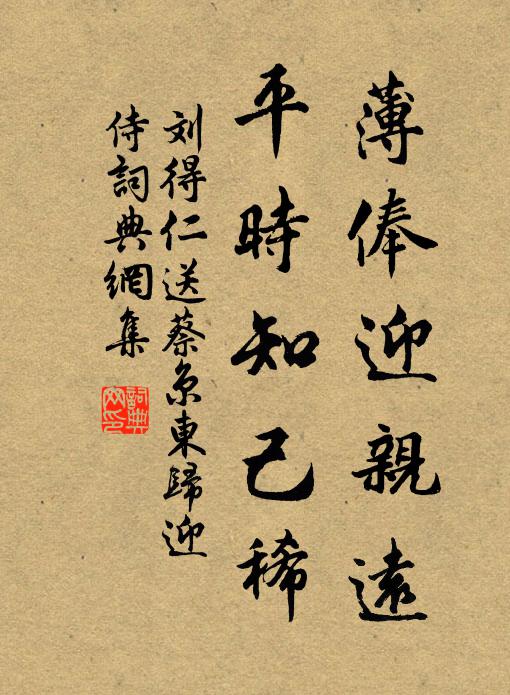 薄俸迎親遠
平時知己稀
刘得仁送蔡京東歸迎
侍詞典網集
詞典
网印